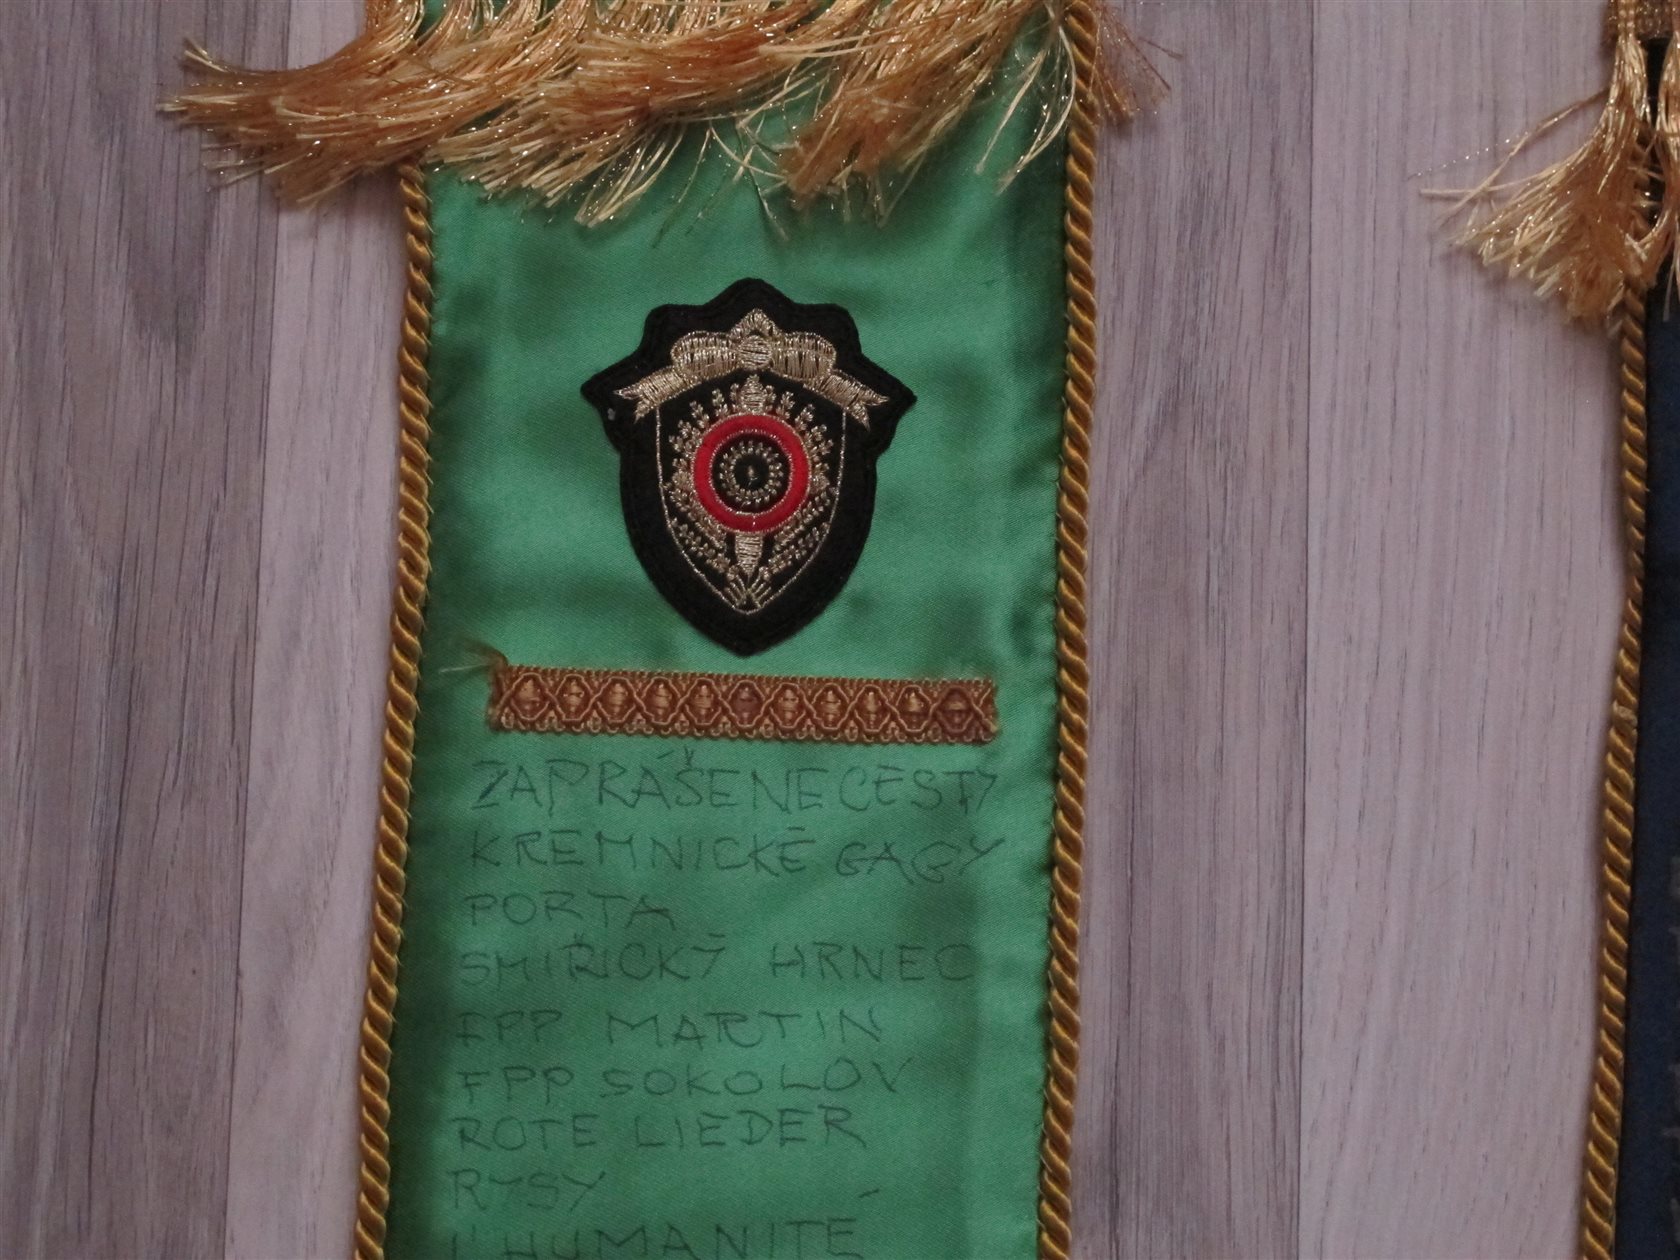 ZAPRÁŠENE CESTY
KREMNICKÉ GAGY
PORTA
SMIŘICKÝ HRNEC
FPP MARTIN
FPP SOKOLOV
ROTE LIEDER
RYSY
L'HUMANITÉ